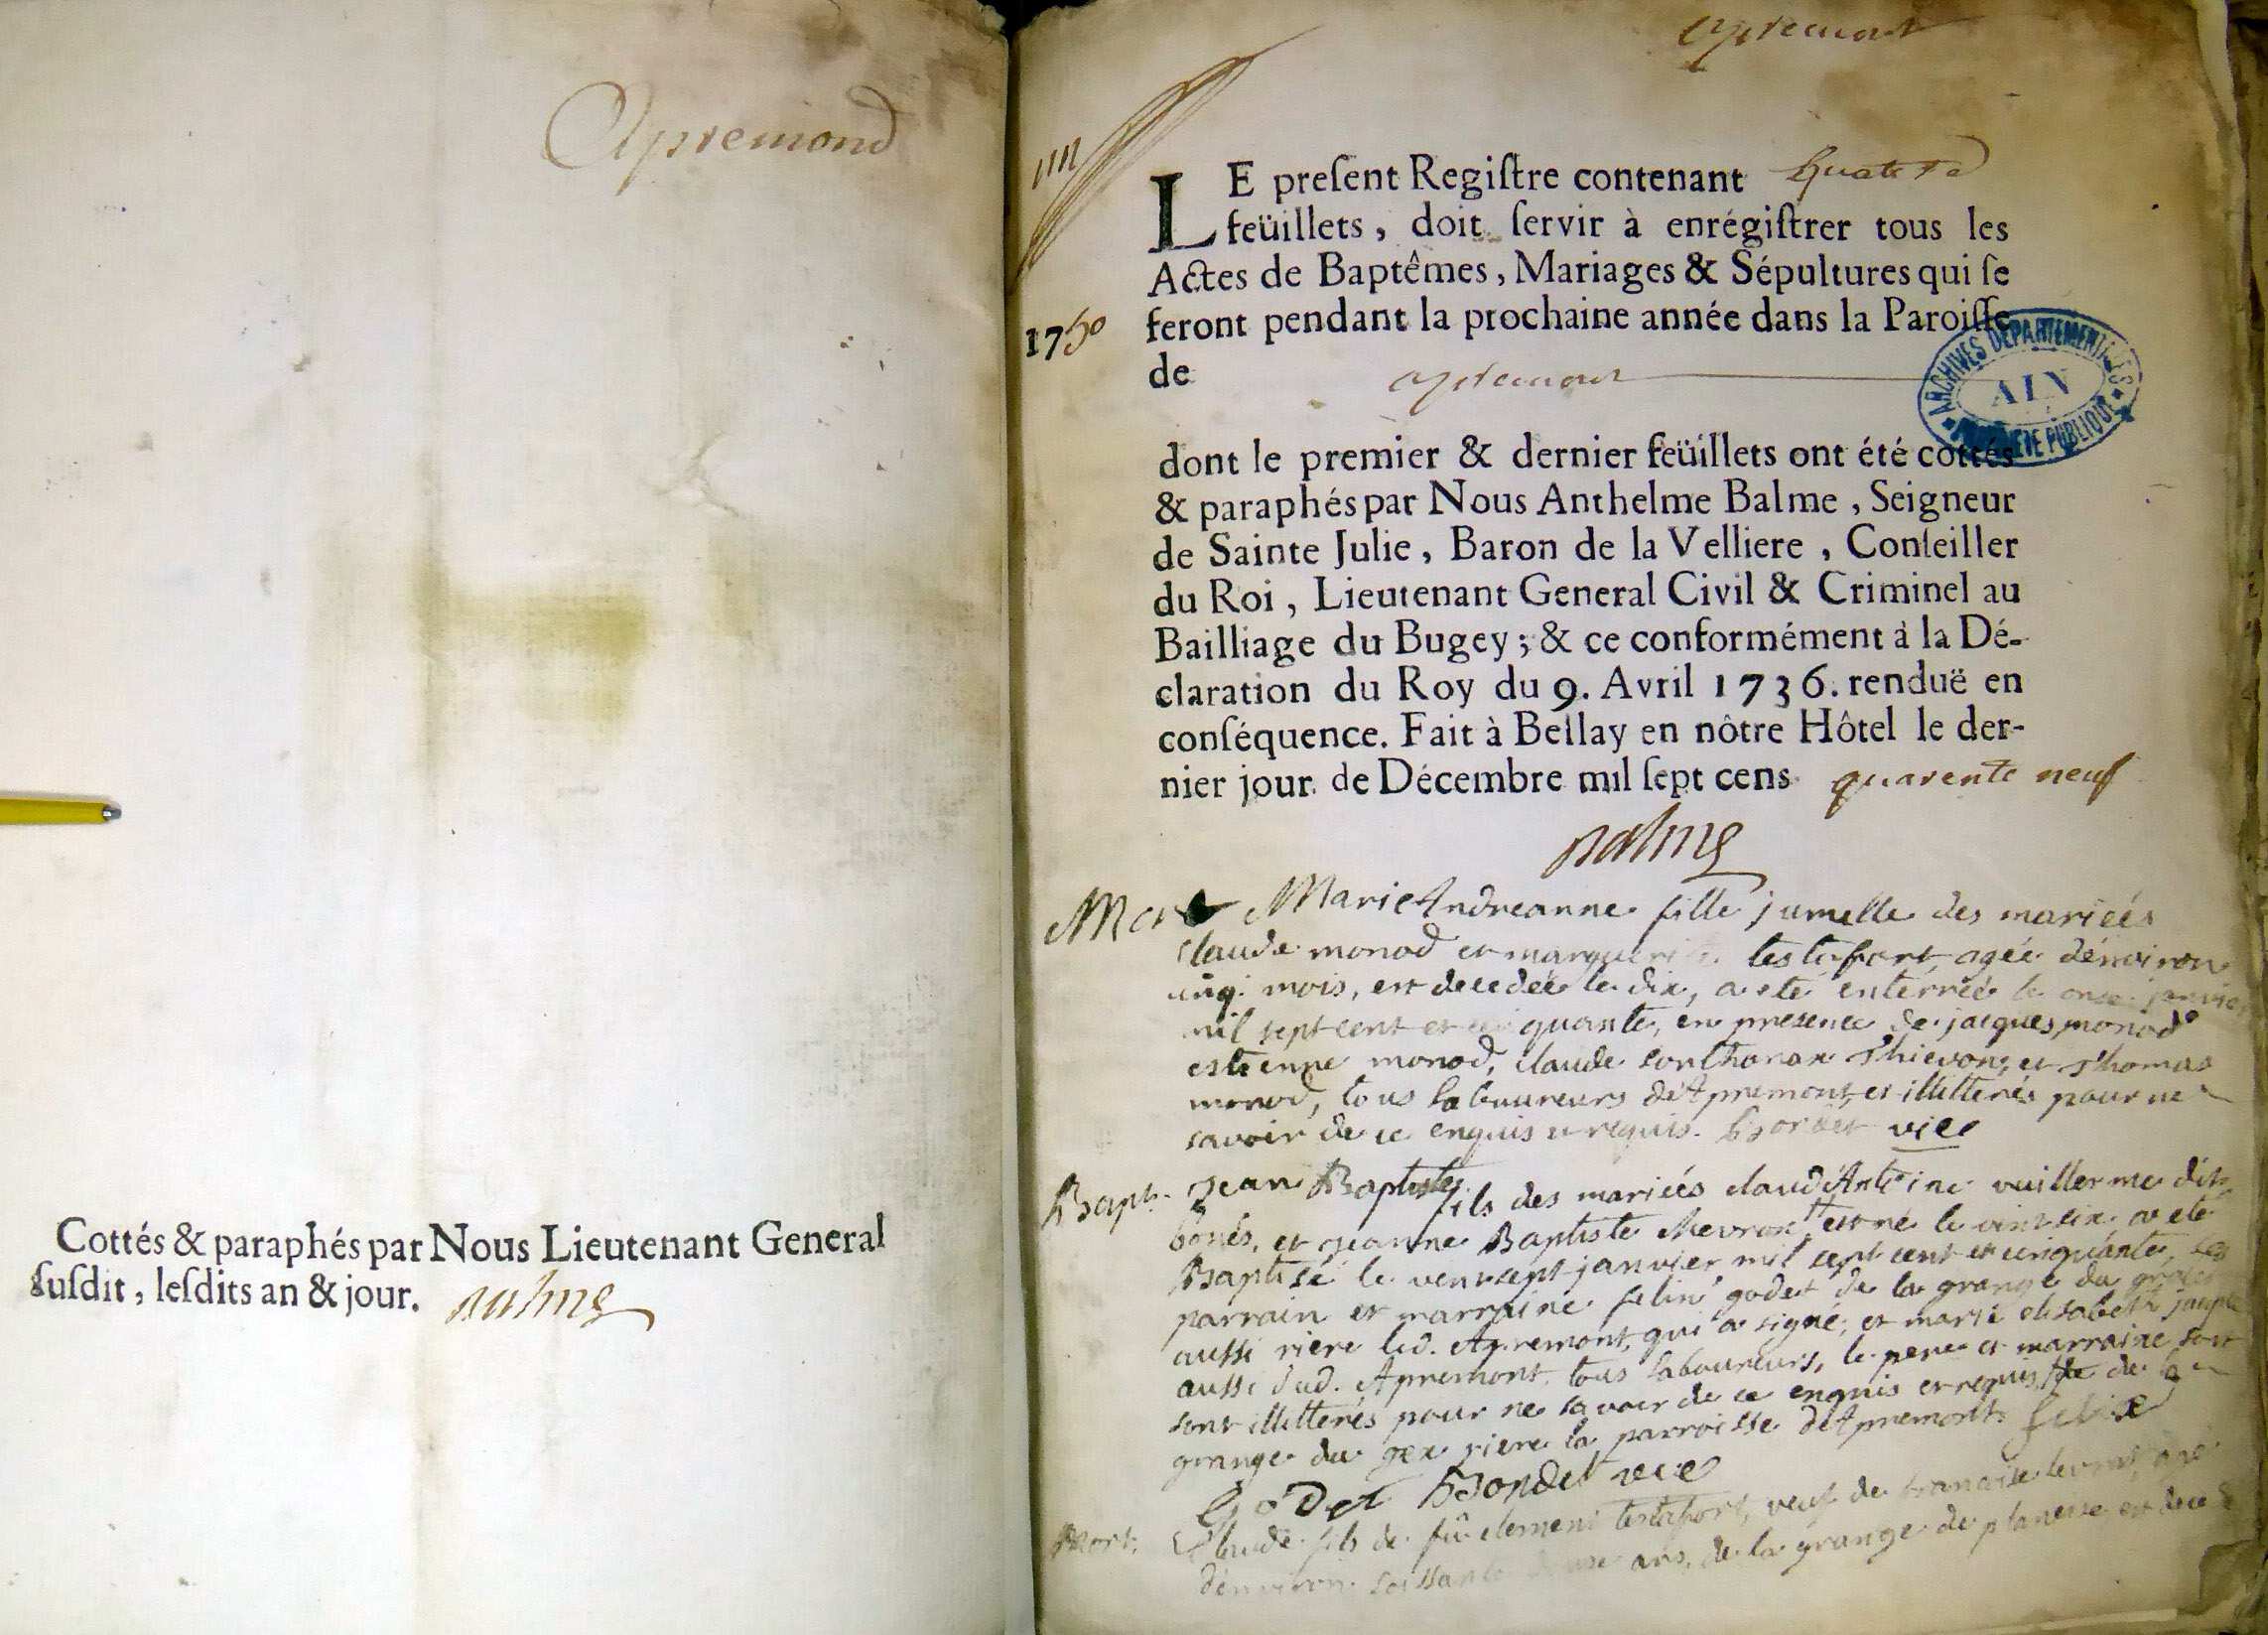 Apremond
Cottés & paraphés par Nous Lieutenant General
ſuſdit, leſdits an & jour. Balme
apremont
LE preſent Regiſtre contenant quatre
feüillets, doit ſervir à enrégiſtrer tous les
Actes de Baptêmes, Mariages & Sépultures qui ſe
1750 feront pendant la prochaine année dans la Paroiſſe
de apremont
ARCHIVES DEPARTEMENTALES
AIN
PROPRIETE PUBLIQUE
dont le premier & dernier feüillets ont été cottés
& paraphés par Nous Anthelme Balme, Seigneur
de Sainte Julie, Baron de la Velliere, Conſeiller
du Roi, Lieutenant General Civil & Criminel au
Bailliage du Bugey; & ce conformément à la Dé-
claration du Roy du 9. Avril 1736. renduë en
conſéquence. Fait à Bellay en nôtre Hôtel le der-
nier jour de Décembre mil ſept cens quarente neuf
Balme
Mort Marie Andreanne fille jumelle des mariées
claude monod et marguerite testafort, agée dénviron
mois, est decedée le dix, a eté enterrée le onze janvier
mil sept cent et cinquante, en presence de jacques monod
estienne monod, claude sonthonax Thievon, et Thomas
monod, tous laboureurs d'Apremont et illitterés pour ne
savoir de ce enquis et requis. Bordet vice
Bapt. Jean Baptiste fils des mariées claud Antoine vuillerme dit
bonés, et jeanne Baptiste Mevron est né le vint six a eté
Baptisé le vent sept janvier mil sept cent et cinquante, les
parrain et marraine felin godet de la grange du
aussi riere led. Apremont, qui a signé, et marie elisabeth
aussi dud. Apremont tous laboureurs, le pere et marraine sont
sont illitterés pour ne savoir de ce enquis et requis de de la
grange du gex riere la parroisse d'Apremont felix
Godet Bordet vice
Mort. Claude fils de fû clement testafort, veuf de francoise agé
dénviron soissante ans, de la grange de planeise est decedé